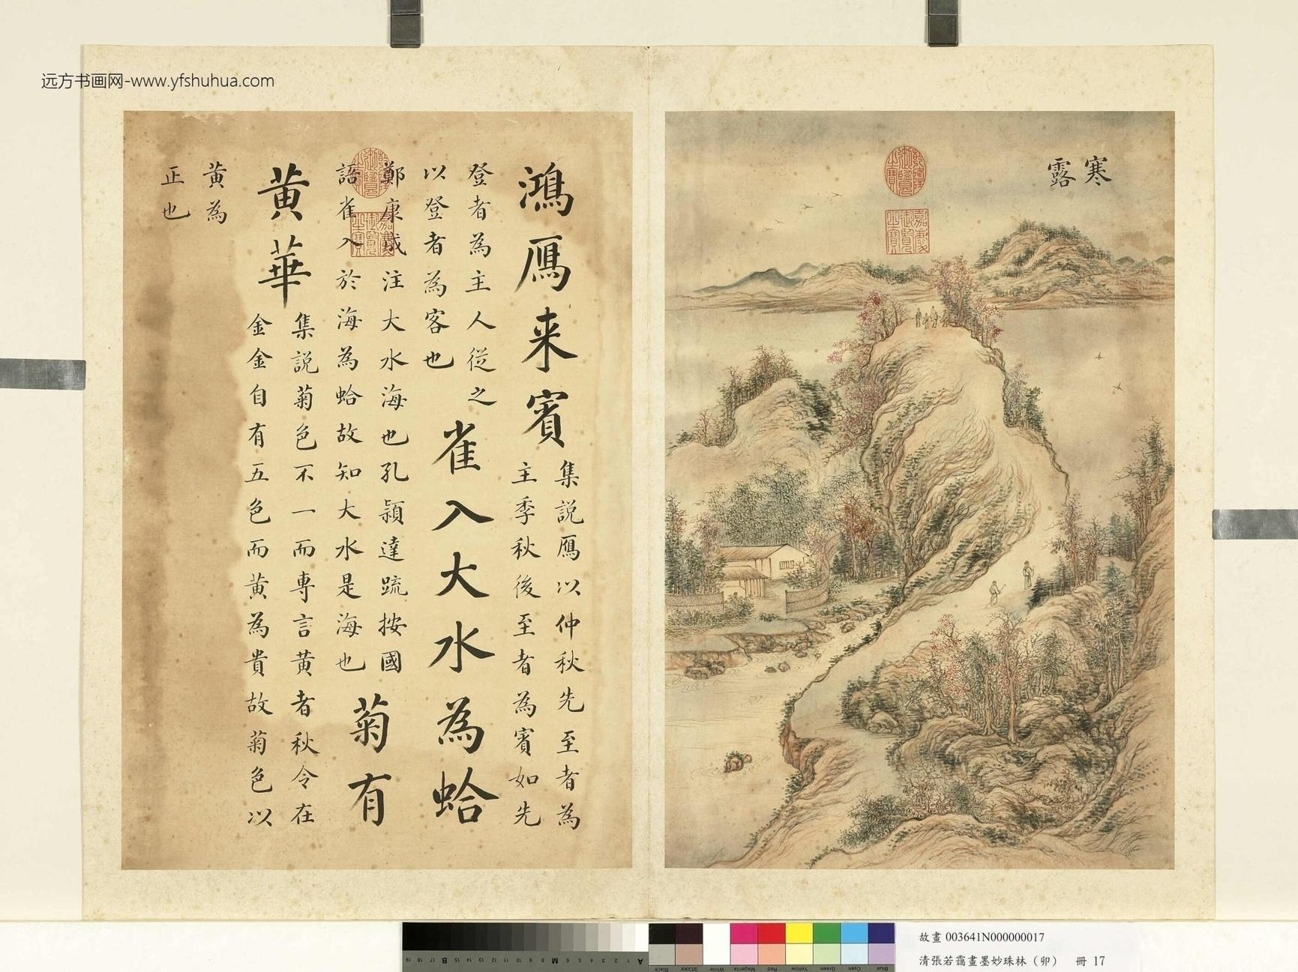 远方书画网-www.yfshuhua.com
寒
露
鴻鴈来賓
集説鴈以仲秋先至者為
主季秋後至者為賓如先
登者為主人從之
以登者為客也
雀入大水為蛤
鄭康成注大水海也孔頴達疏按國
語雀入於海為蛤故知大水是海也
菊有
黄華
集説菊色不一而專言黄者秋令在
金金自有五色而黄為貴故菊色以
黄為
正也
故畫 003641N000000017
清張若靄畫墨妙珠林（卯） 冊 17